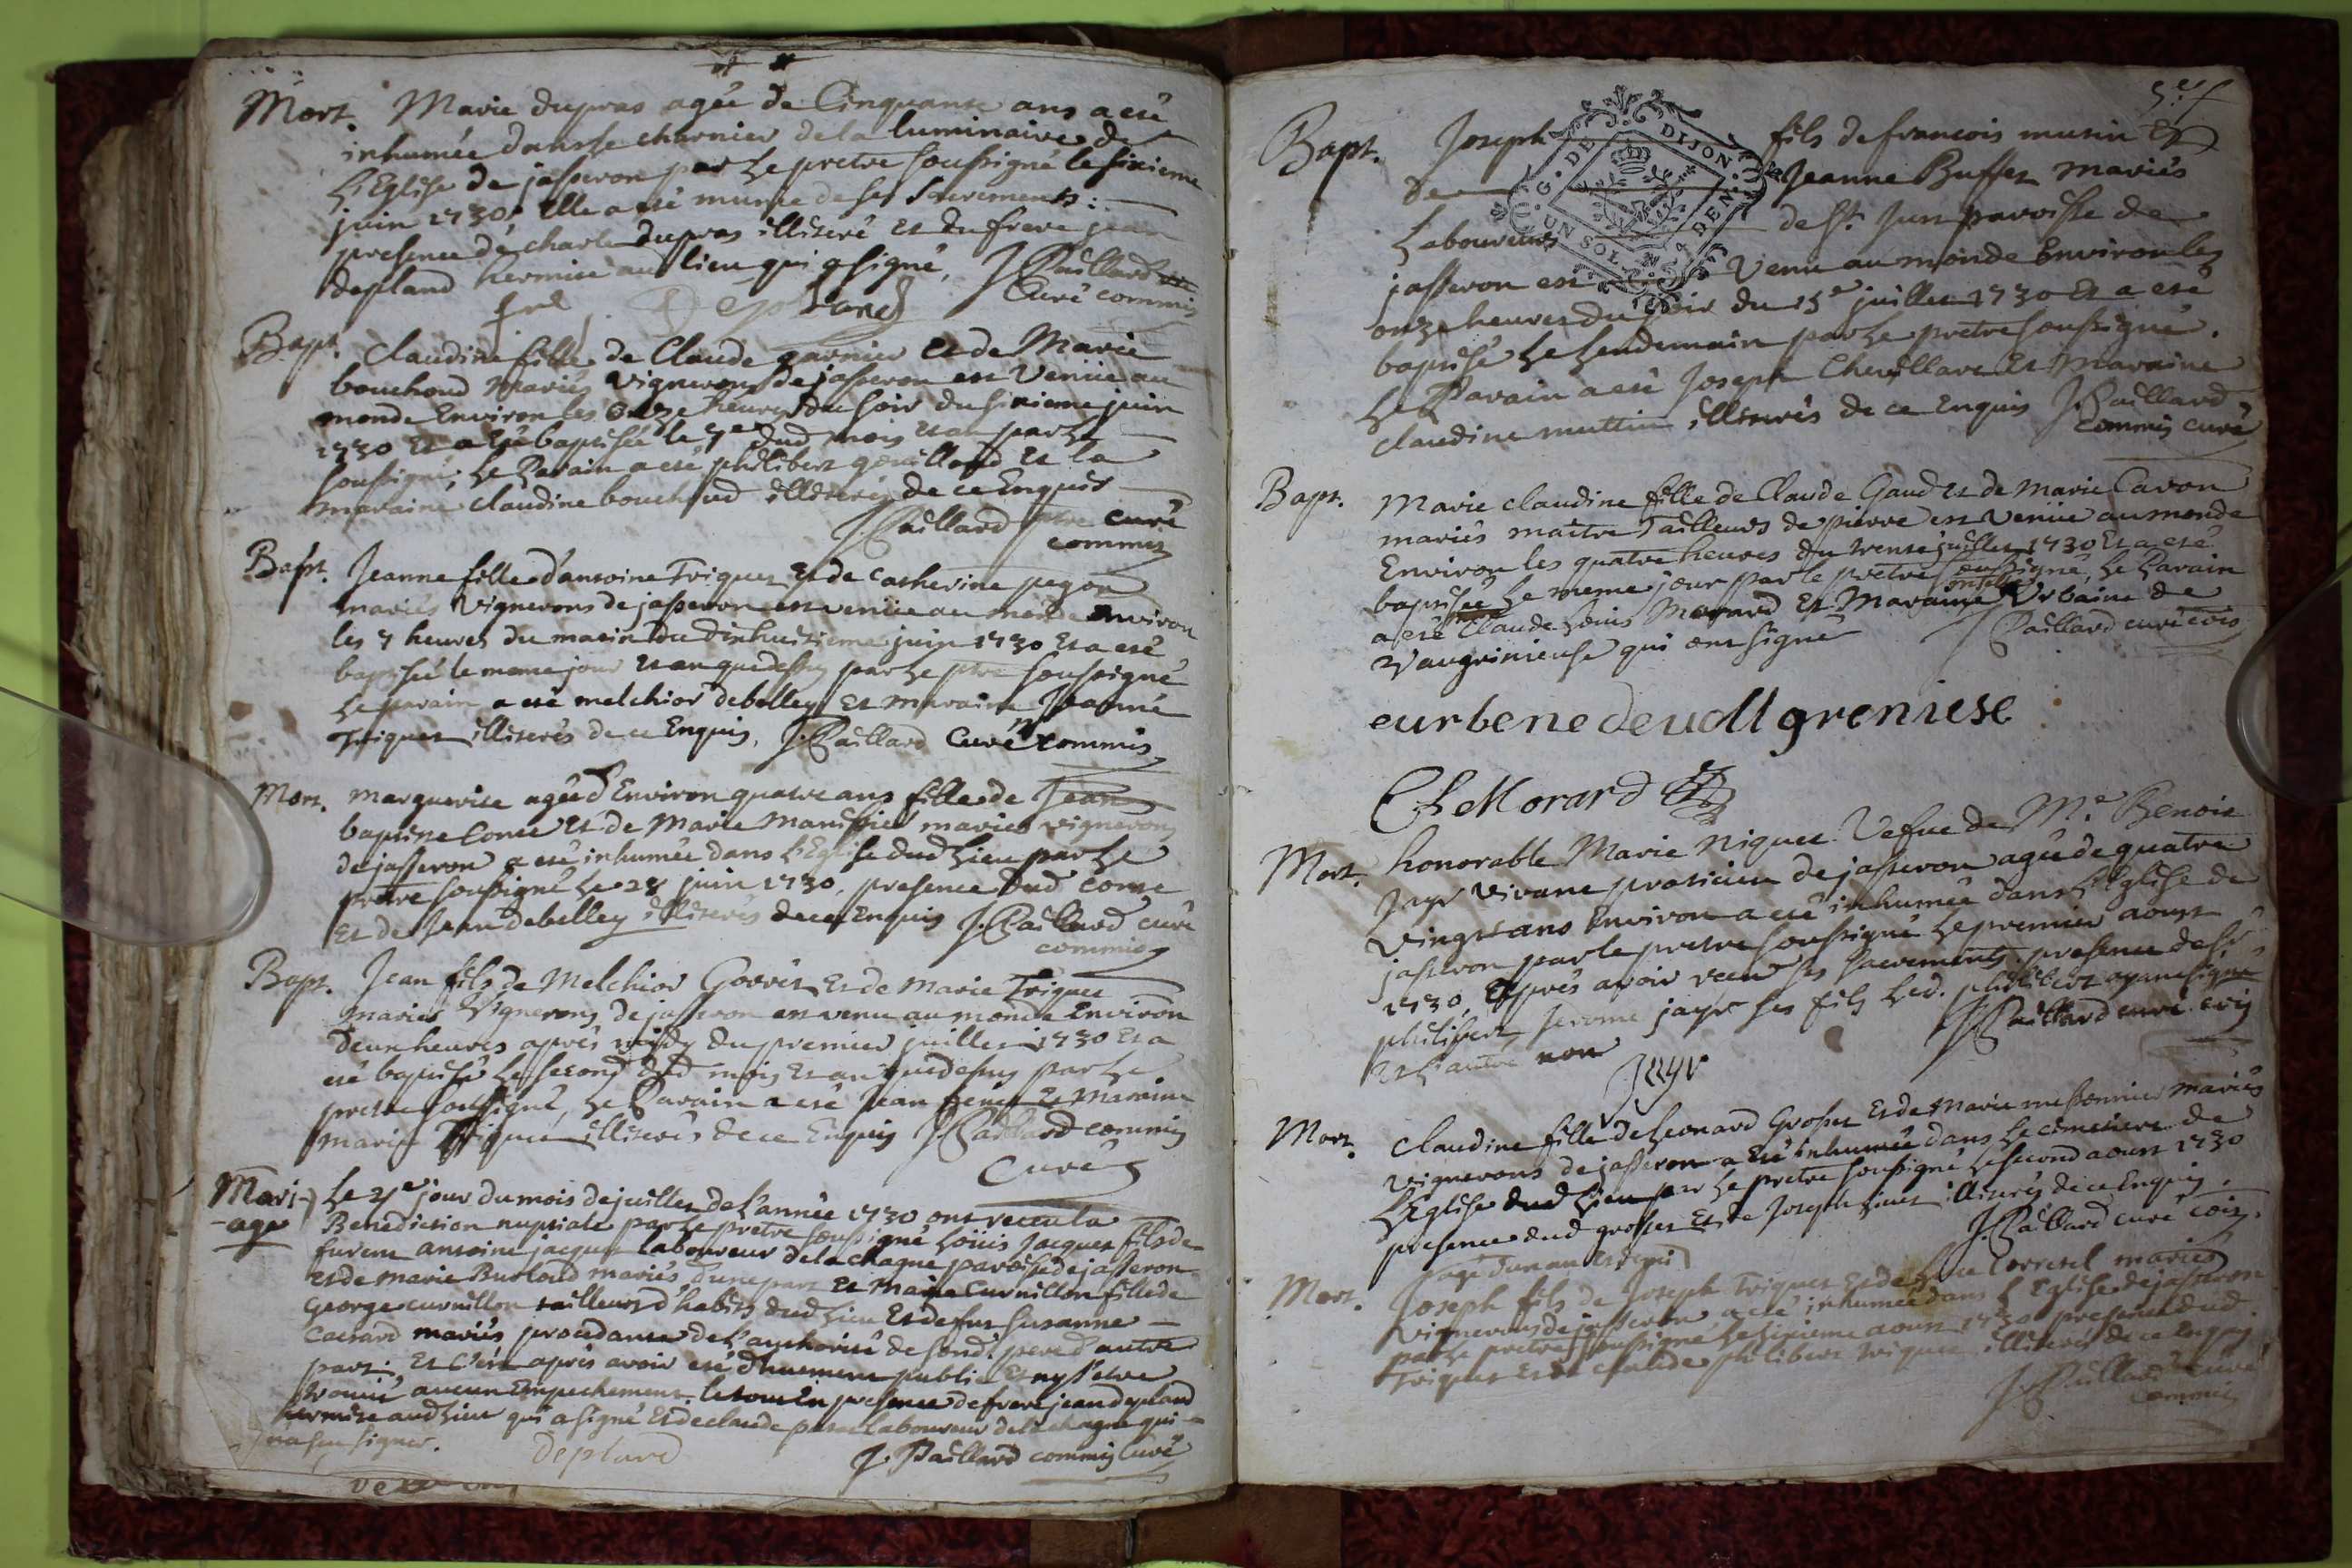 Mort. Marie dupras agée de Cinquante ans a eté
inhumée dans le charnier de la luminaire de
L'Eglise de jasseron par le pretre soussigné le sixieme
juin 1730, Elle a eté munie de ses Sacrements:
presence de charle dupras illiteré et du frere jean
depland hermite aud lieu qui a signé, J. Paillard
frere Depland Curé commis
Bapt. Claudine fille de Claude garnier et de Marie
bouchoud Mariés vignerons de jasseron est Venüe au
monde Environ les onze heures du soir du sixieme juin
1730 Et a Eté baptisée le 7e dud mois et an par le
soussigné; Le Parain a eté philibert Et la
maraine claudine bouchoud illiterés de ce Enquis
J. Paillard ptre curé
commis
Bapt. Jeanne fille d'antoine Triquet Et de Catherine pegon
mariés Vignerons de jasseron est venüe au monde Environ
les 7 heures du matin du dixhuitieme juin 1730 Et a eté
baptisée le meme jour et an que dessus par le ptre soussigné
Le parain a eté melchior debelley Et maraine Jeanne
Triquet illiterés de ce Enquis, J. Paillard Curé commis
Mort. marguerite agée d'Environ quatre ans fille de Jean
baptiste Conte Et de Marie mariés vignerons
de jasseron a eté inhumée dans L'Eglise dud Lieu par le
pretre soussigné Le 28 juin 1730, presence dud conte
Et de Jean debelley illiterés de ce Enquis J. Paillard curé
commis
Bapt. Jean fils de Melchior Gorret Et de Marie Triquet
mariés Vignerons de jasseron est venu au monde Environ
deux heures aprés midy du premier juillet 1730 Et a
eté baptisé Le second dud mois Et an que dessus par Le
pretre soussigné, Le Parain a eté Jean Et Maraine
Marie Triquet illiterés de ce Enquis J. Paillard commis
Curé
Mari- Le jour du mois de juillet de l'année 1730 ont receu la
-age Benediction nuptiale par Le pretre soussigné Loüis Jacquet fils de
furent antoine jacquet Laboureur de la chagne paroisse de jasseron
et de Marie Burtoud mariés d'une part Et Marie Curnillon fille de
George curnillon tailleurs d'habits dud Lieu Et de fut Susanne
mariés procedante de l'authorité de sond. pere d'autre
part: Et c'est aprés avoir eté duement publié Et ny s'etre
trouvé aucun Empechement. le tout En presence de frere jean depland
hermite aud Lieu qui a signé Et de claude laboureur de la chagne qui
n'a sçu signer. deplard J. Paillard commis Curé
Bapt. Joseph fils de francois mutin Et
de Jeanne Buffet Mariés
Laboureurs de St. Jun paroisse de
jasseron est Venu au monde Environ les
onze heures du soir du 15e juillet 1730 Et a eté
baptisé Le Lendemain par Le pretre soussigné.
Le Parain a eté Joseph Et Maraine
claudine muttin illiterés de ce Enquis J. Paillard
commis curé
Bapt. Marie claudine fille de Claude Gaud Et de Marie Cavon
mariés maitre Tailleurs de pierre est Venüe au monde
Environ les quatre heures du trente juillet 1730 Et a eté
baptisée Le meme jour par le pretre soussigné, Le Parain
a eté Claude Loüis Morard Et Maraine Urbaine de
Vaugrineuse qui ont signé J. Paillard curé cois
eurbene deudll greniese
C. L Morard
Mort. honorable Marie Niquet Vefue de Me. Benoit
Jayr vivant praticien de jasseron agée de quatre
vingt ans Environ a eté inhumée dans L'Eglise de
jasseron par le pretre soussigné Le premier aoust
1730, Aprés avoir receu ses sacrements. presence de Sr.
philibert Jerome jayr ses fils Led. philibert ayant signé
et L'autre non J. Paillard curé cois
Jayr
Mort. Claudine fille de Leonard Grosset Et de Marie messonnier Mariés
vignerons de jasseron a Eté inhumée dans Le cimetiere de
L'Eglise dud Lieu par Le pretre soussigné Le second aoust 1730
presence dud grosset Et de Joseph illiterés de ce Enquis.
J. Paillard curé cois.
agé d'un an et demi
Mort. Joseph fils de Joseph Triquet Et de mariés
vignerons de jasseron a eté inhumée dans L'Eglise de jasseron
par Le pretre soussigné Le sixieme aoust 1730 presence dud.
Triquet Et de claude philibert triquet illiterés de ce Enquis
J. Paillard curé
commis